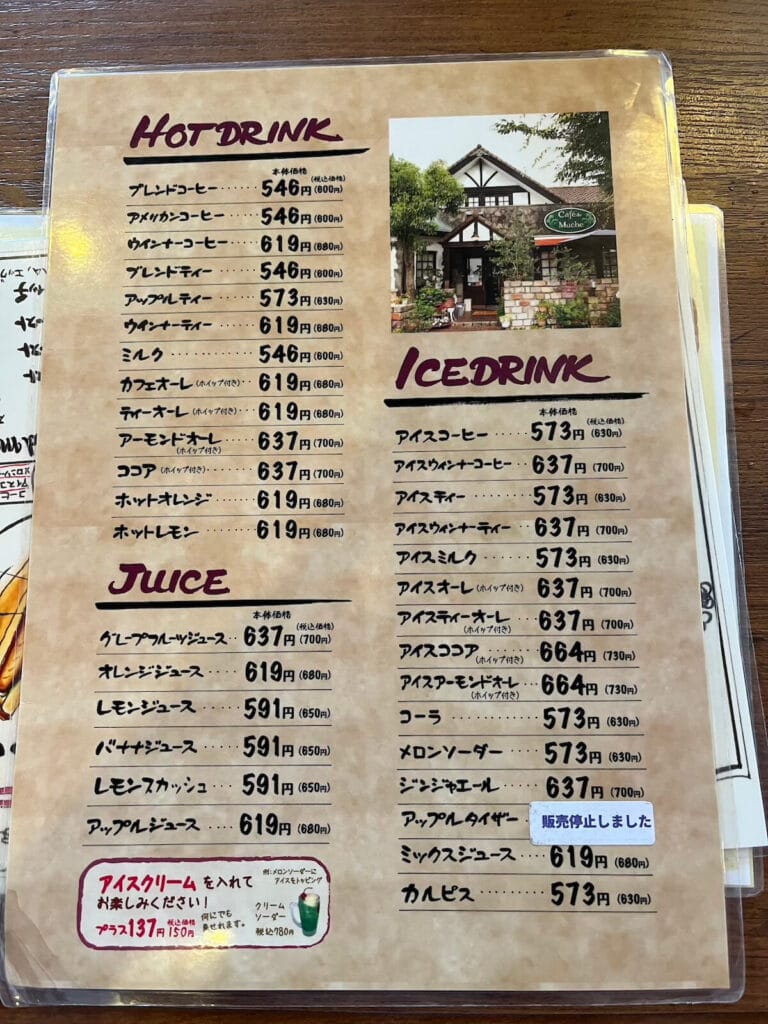 HOT DRINK
本体価格
(税込価格)
ブレンドコーヒー······546円(600円)
アメリカンコーヒー···546円(600円)
ウインナーコーヒー···619円(680円)
ブレンドティー······546円(600円)
アップルティー······573円(630円)
ウインナーティー·····619円(680円)
ミルク············546円(600円)
カフェオーレ(ホイップ付き)·619円(680円)
ティーオーレ(ホイップ付き)·619円(680円)
アーモンドオーレ····637円(700円)
(ホイップ付き)
ココア(ホイップ付き)·····637円(700円)
ホットオレンジ······619円(680円)
ホットレモン·······619円(680円)
JUICE
本体価格
(税込価格)
グレープフルーツジュース··637円(700円)
オレンジジュース····619円(680円)
レモンジュース·····591円(650円)
バナナジュース·····591円(650円)
レモンスカッシュ····591円(650円)
アップルジュース····619円(680円)
アイスクリームを入れて
お楽しみください!
プラス137円 税込価格150円
何にでも
乗せれます。
例:メロンソーダーに
アイスをトッピング
クリーム
ソーダー
税込780円
Café de
Muche
ICE DRINK
本体価格
(税込価格)
アイスコーヒー·····573円(630円)
アイスウィンナーコーヒー··637円(700円)
アイスティー······573円(630円)
アイスウィンナーティー···637円(700円)
アイスミルク······573円(630円)
アイスオーレ(ホイップ付き)637円(700円)
アイスティーオーレ···637円(700円)
(ホイップ付き)
アイスココア(ホイップ付き)··664円(730円)
アイスアーモンドオーレ··664円(730円)
(ホイップ付き)
コーラ··········573円(630円)
メロンソーダー····573円(630円)
ジンジャエール····637円(700円)
アップルタイザー 販売停止しました
ミックスジュース····619円(680円)
カルピス········573円(630円)